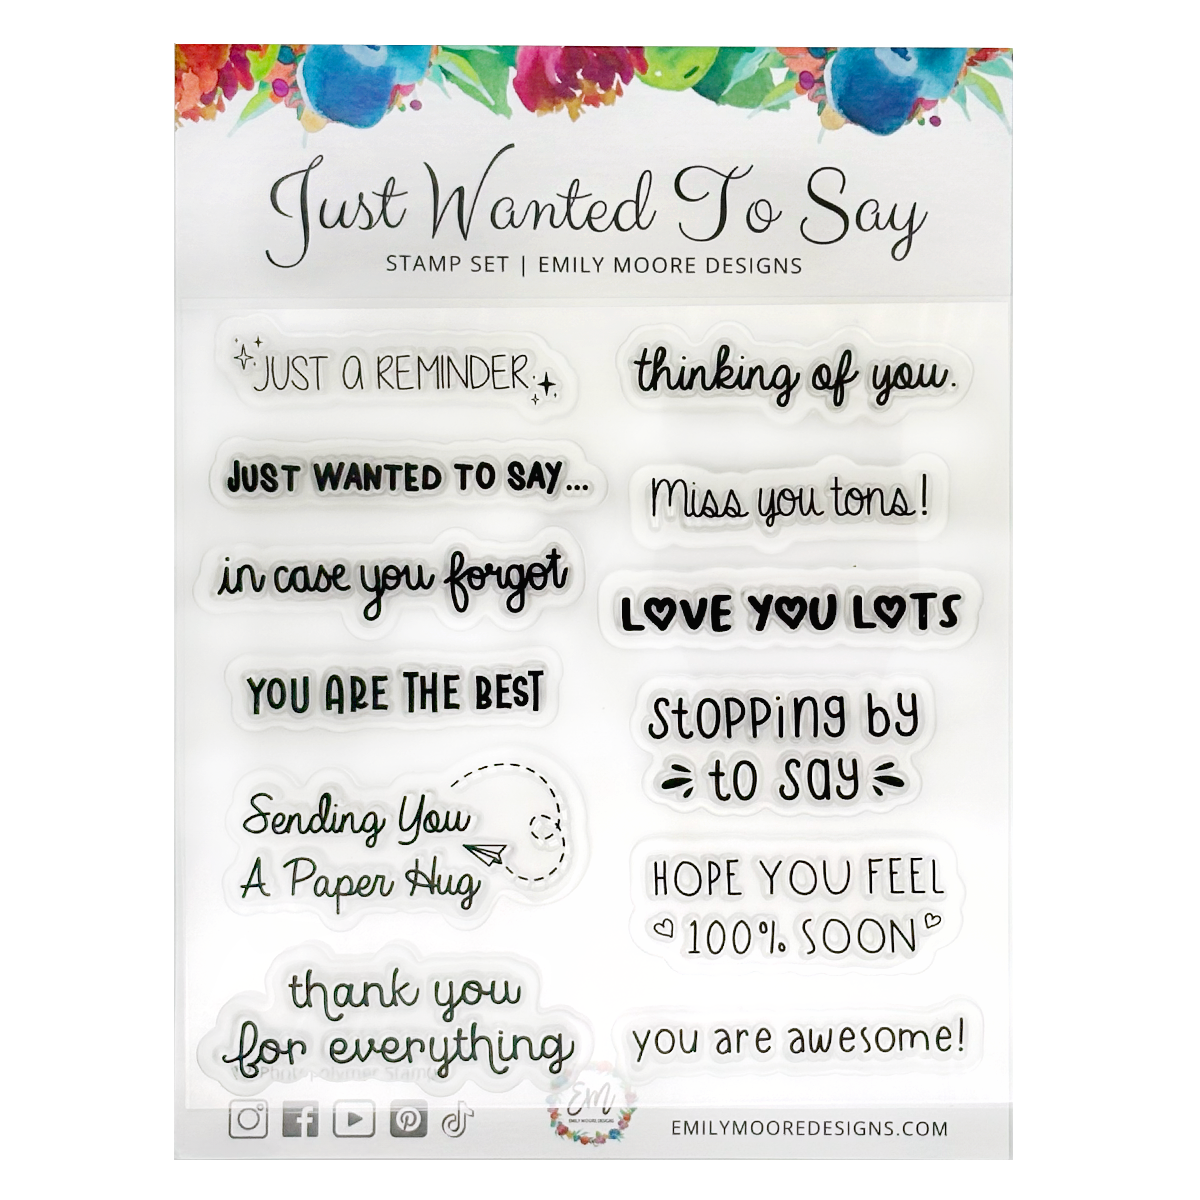 Just Wanted To Say
STAMP SET | EMILY MOORE DESIGNS
JUST A REMINDER
JUST WANTED TO SAY...
in case you forgot
YOU ARE THE BEST
Sending You
A Paper Hug
thank you
for everything
thinking of you.
Miss you tons!
LOVE YOU LOTS
Stopping by
to say
HOPE YOU FEEL
100% SOON
you are awesome!
Photopolymer Stamp
EM
EMILY MOORE DESIGNS
EMILYMOOREDESIGNS.COM